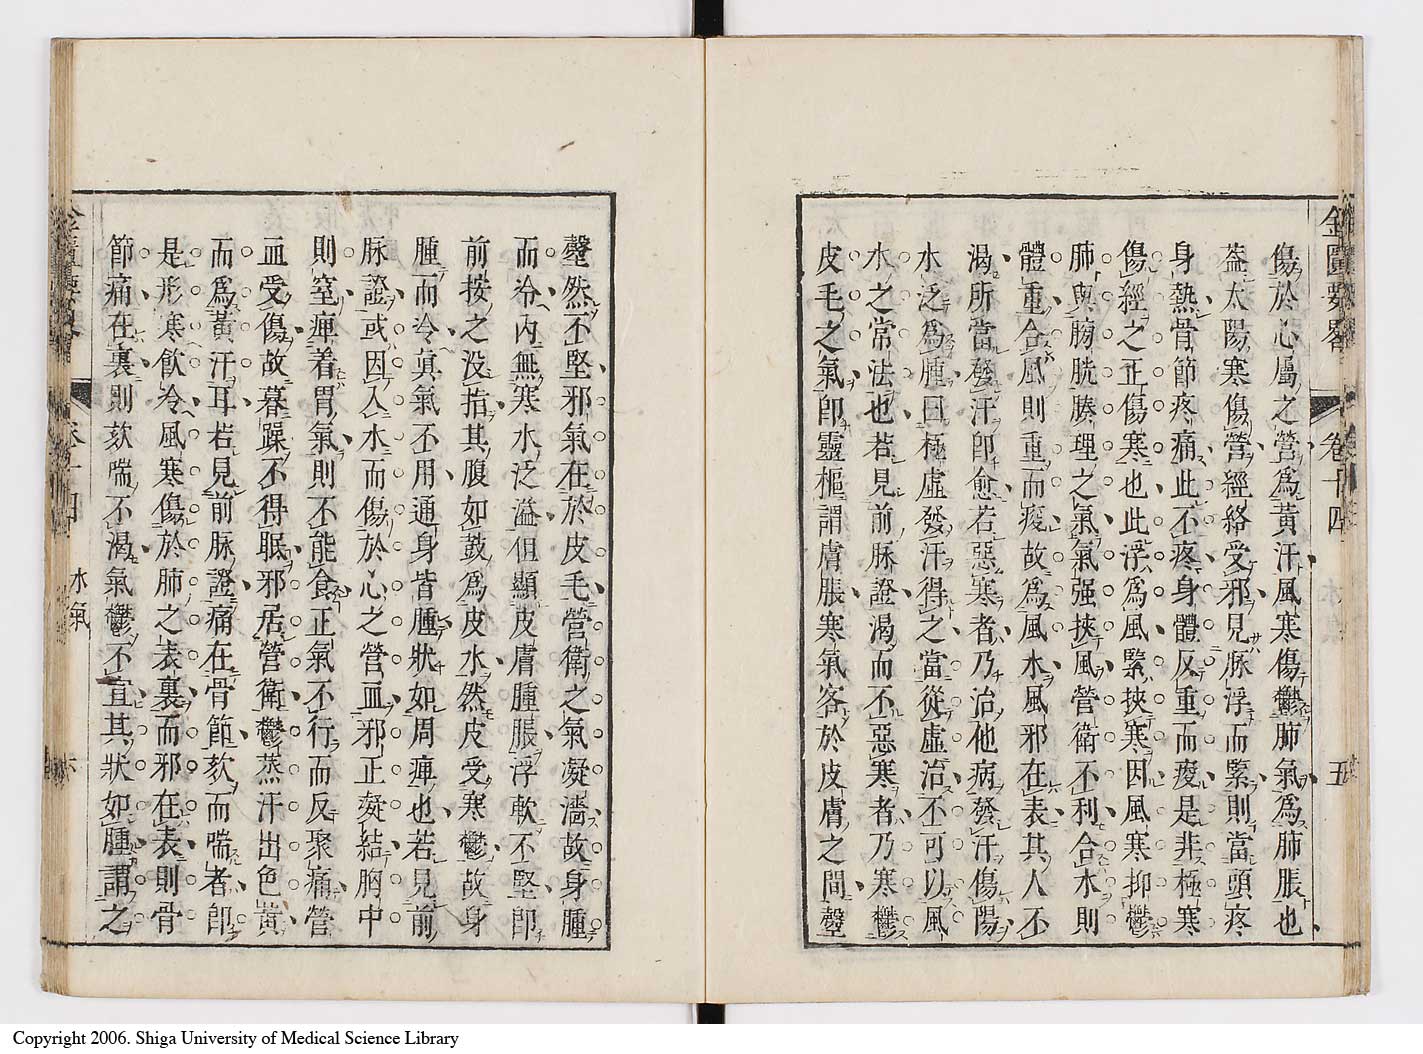 金匱要畧 卷十四 五
傷於心屬之營爲黃汗風寒傷鬱肺氣爲肺脹也
葢太陽寒傷營經絡受邪見脉浮而緊則當頭疼
身熱骨節疼痛此不疼身體反重而痠是非極寒
傷經之正傷寒也此浮爲風緊挾寒因風寒抑鬱
肺與膀胱腠理之氣氣强挾風營衛不利合水則
體重合風則重而痠故爲風水風邪在表其人不
渴所當發汗卽愈若惡寒者乃治他病發汗傷陽
水泛爲腫曰極虛發汗得之當從虛治不可以風
水之常法也若見前脉證渴而不惡寒者乃寒鬱
皮毛之氣卽靈樞謂膚脹寒氣客於皮膚之間鼞
鼞然不堅邪氣在於皮毛營衛之氣凝濇故身腫
而冷內無寒水泛溢但顯皮膚腫脹浮軟不堅卽
前按之没指其腹如鼓爲皮水然皮受寒鬱故身
腫而冷眞氣不用通身皆腫狀如周痺也若見前
脉證或因入水而傷於心之營血邪正凝結胸中
則窒痺着胃氣則不能食正氣不行而反聚痛營
血受傷故暮躁不得眠邪居營衛鬱蒸汗出色黃
而爲黃汗耳若見前脉證痛在骨節欬而喘者卽
是形寒飮冷風寒傷於肺之表裏而邪在表則骨
節痛在裏則欬喘不渴氣鬱不宣其狀如腫謂之
卷十四 水氣 六
Copyright 2006. Shiga University of Medical Science Library